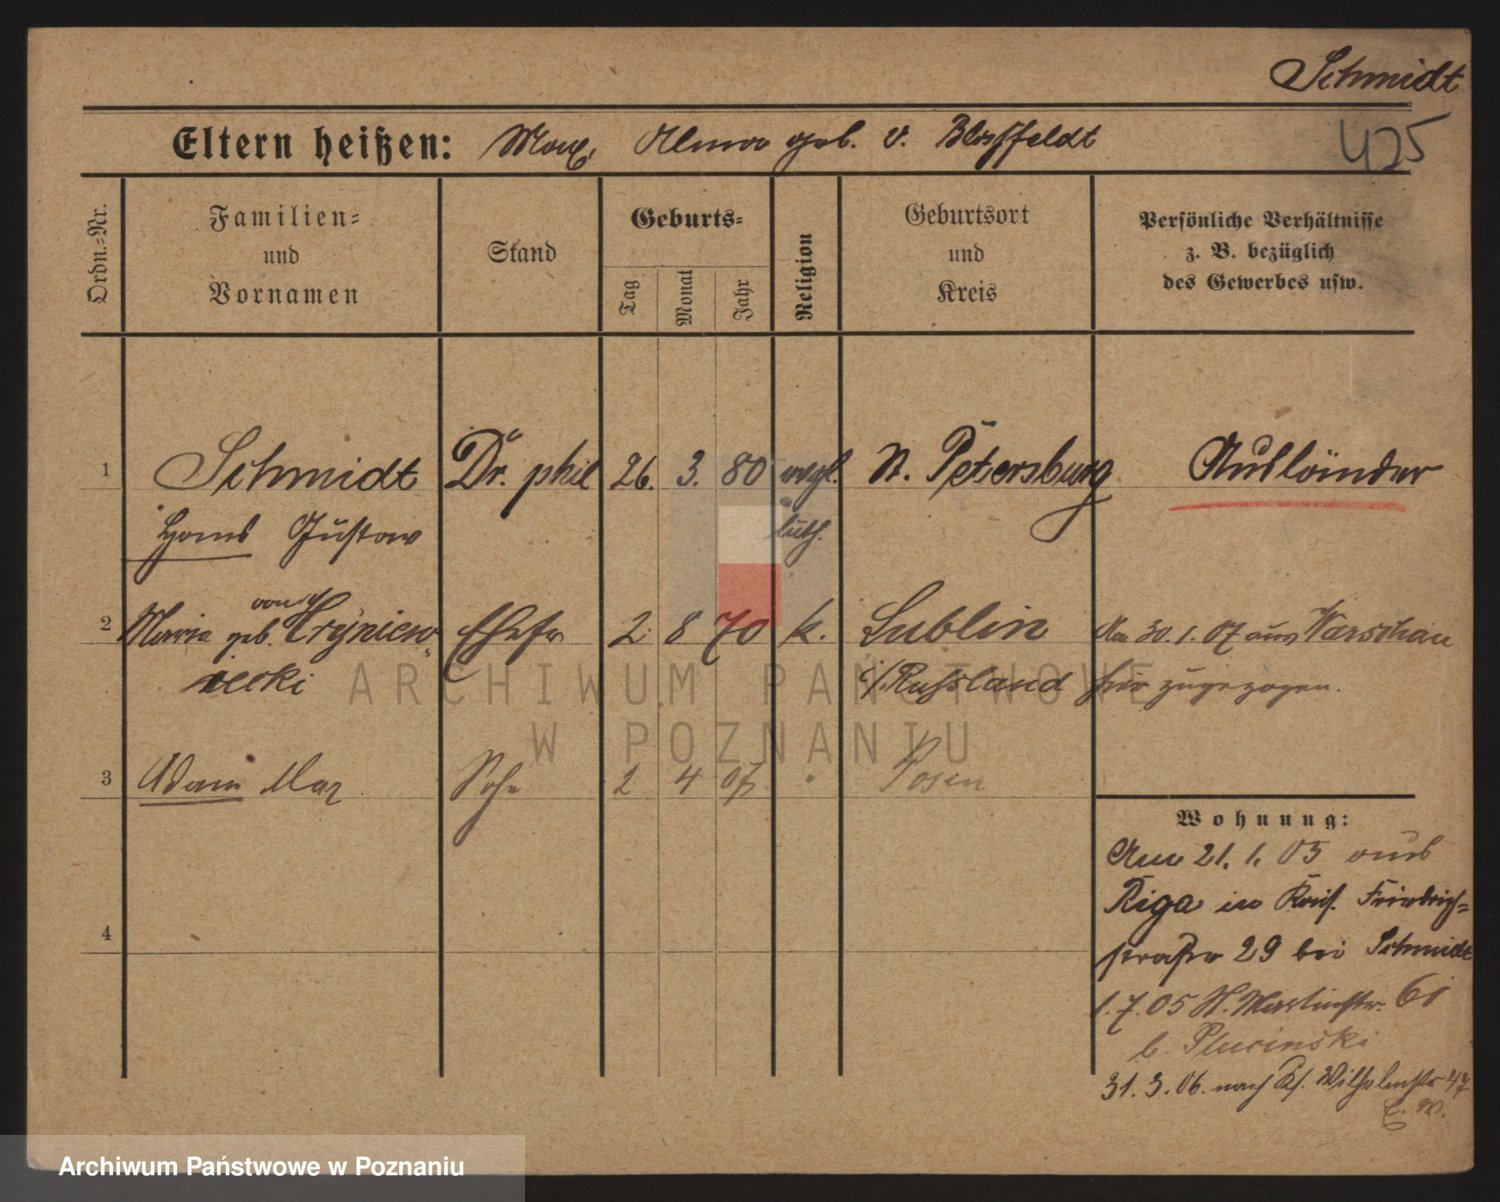 Schmidt
Eltern heißen: Max, Alma geb. v. Blossfeldt
425
Ordn.-Nr.
Familien-
und
Vornamen
Stand
Geburts-
Tag
Monat
Jahr
Religion
Geburtsort
und
Kreis
Persönliche Verhältnisse
z. B. bezüglich
des Gewerbes usw.
1 Schmidt Dr. phil 26. 3. 80 evgl. St. Petersburg Ausländer
Hans Gustav luth.
von
2 Maria geb. Hryniew- Ehefr 2 8 70 k. Lublin 30.1.07 aus Warschau
iecki i/Russland hier zugezogen.
ARCHIWUM PAŃSTWOWE
W POZNANIU
3 Adam Max Sohn 2 4 07 Posen
Wohnung:
Am 21. 1. 05 aus
Riga in Friedrich-
straße 29 bei Schmidt
1.7.05 St. Martinstr. 61
b. Plucinski
31.3.06. nach Wilhelmstr 47
4
Archiwum Państwowe w Poznaniu